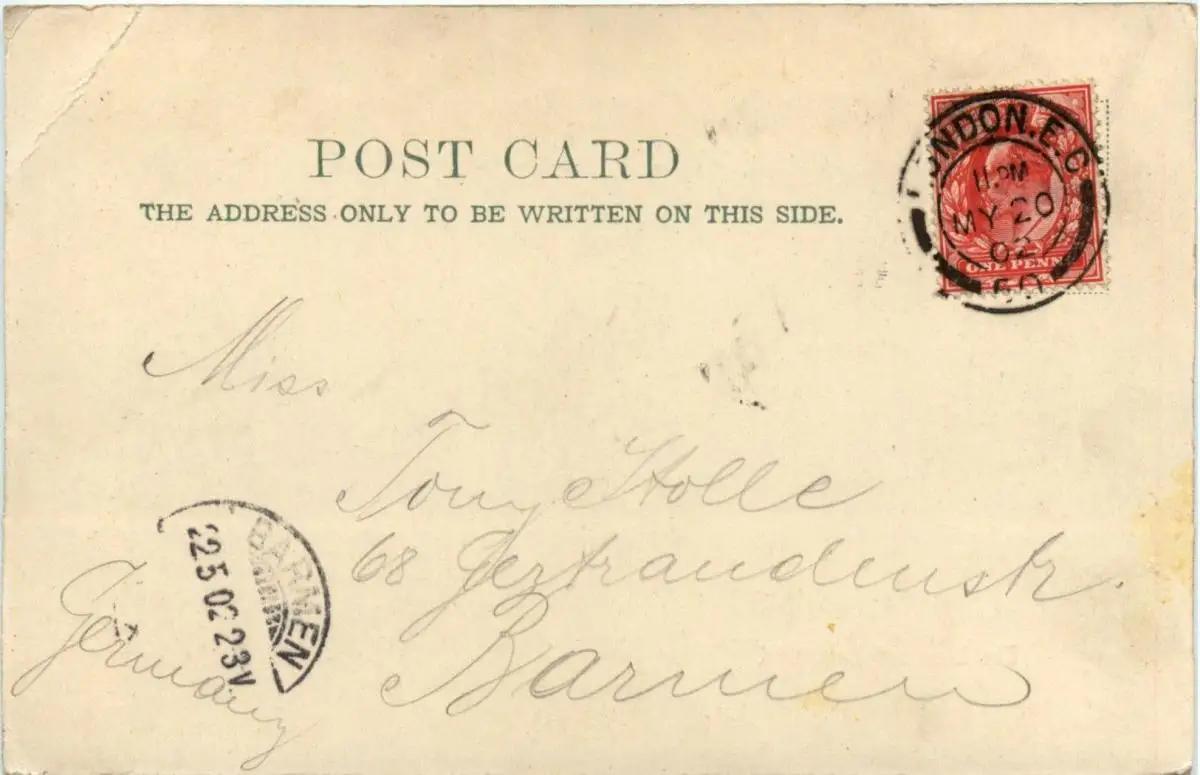 POST CARD
THE ADDRESS ONLY TO BE WRITTEN ON THIS SIDE.
LONDON.E.C
11.PM
MY 20
02
60
ONE PENNY
Miss
Tony Holle
68
Barmen
Germany
BARMEN
22 5 02 2-3V